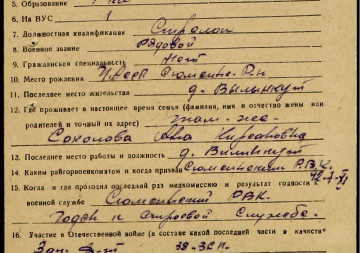 5. Образование
6. На ВУС 1
7. Должностная квалификация Стрелок
8. Военное звание Рядовой
9. Гражданская специальность Нет
10. Место рождения
11. Последнее место жительства д. Вылынгут
12. Где проживает в настоящее время семья (фамилия, имя и отчество жены или
родителей и точный их адрес) там-же
Соколова Кирсановна
13. Последнее место работы и должность д.
14. Каким райгорвоенкоматом и когда призван Сюмсинским РВК.
15. Когда и где проходил последний раз медкомиссию и результат годности к
военной службе Сюмсинский РВК.
Годен к строевой службе.
16. Участие в Отечественной войне (в составе какой последней части и в качестве
38-ЗСП.